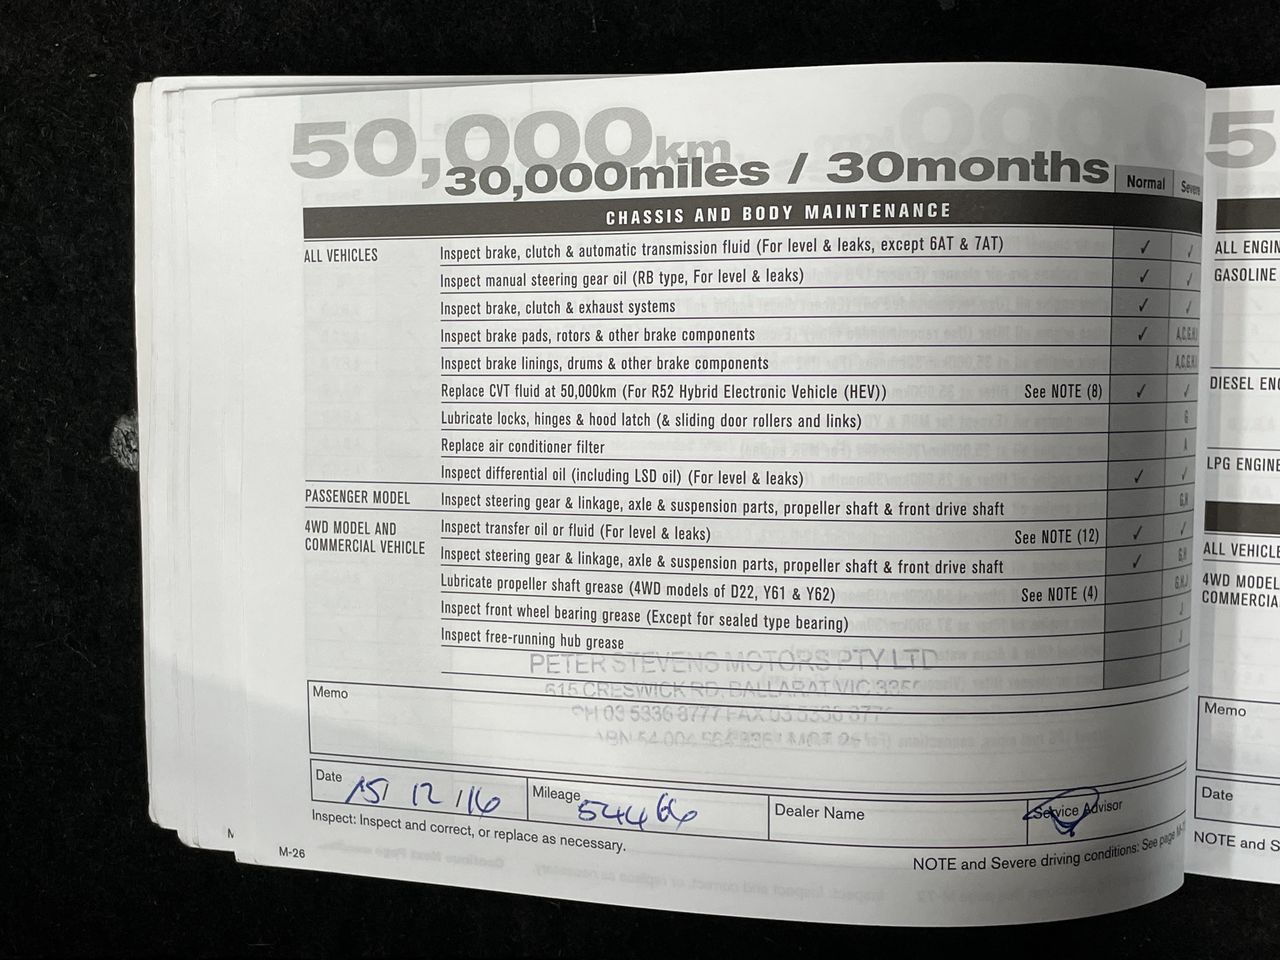 50,000km
30,000miles / 30months
Normal Severe
CHASSIS AND BODY MAINTENANCE
ALL VEHICLES Inspect brake, clutch & automatic transmission fluid (For level & leaks, except 6AT & 7AT) ✓ ✓
Inspect manual steering gear oil (RB type, For level & leaks) ✓ ✓
Inspect brake, clutch & exhaust systems ✓ ✓
Inspect brake pads, rotors & other brake components ✓ A,C,G,H,I
Inspect brake linings, drums & other brake components A,C,G,H,I
Replace CVT fluid at 50,000km (For R52 Hybrid Electronic Vehicle (HEV)) See NOTE (8) ✓ ✓
Lubricate locks, hinges & hood latch (& sliding door rollers and links) G
Replace air conditioner filter A
Inspect differential oil (including LSD oil) (For level & leaks) ✓ ✓
PASSENGER MODEL Inspect steering gear & linkage, axle & suspension parts, propeller shaft & front drive shaft G,H
4WD MODEL AND COMMERCIAL VEHICLE Inspect transfer oil or fluid (For level & leaks) See NOTE (12) ✓ ✓
Inspect steering gear & linkage, axle & suspension parts, propeller shaft & front drive shaft ✓ G,H
Lubricate propeller shaft grease (4WD models of D22, Y61 & Y62) See NOTE (4) G,H,J
Inspect front wheel bearing grease (Except for sealed type bearing) J
Inspect free-running hub grease J
PETER STEVENS MOTORS PTY LTD
615 CRESWICK RD, BALLARAT VIC
PH 03 5336 8777 FAX 03 5336
ABN 54 004 564
Memo
Date 15/ 12 /16 Mileage 54466 Dealer Name Service Advisor
Inspect: Inspect and correct, or replace as necessary.
NOTE and Severe driving conditions: See page
M-26
5
ALL ENGIN
GASOLINE
DIESEL ENG
LPG ENGINE
ALL VEHICLE
4WD MODEL
COMMERCIA
Memo
Date
NOTE and S